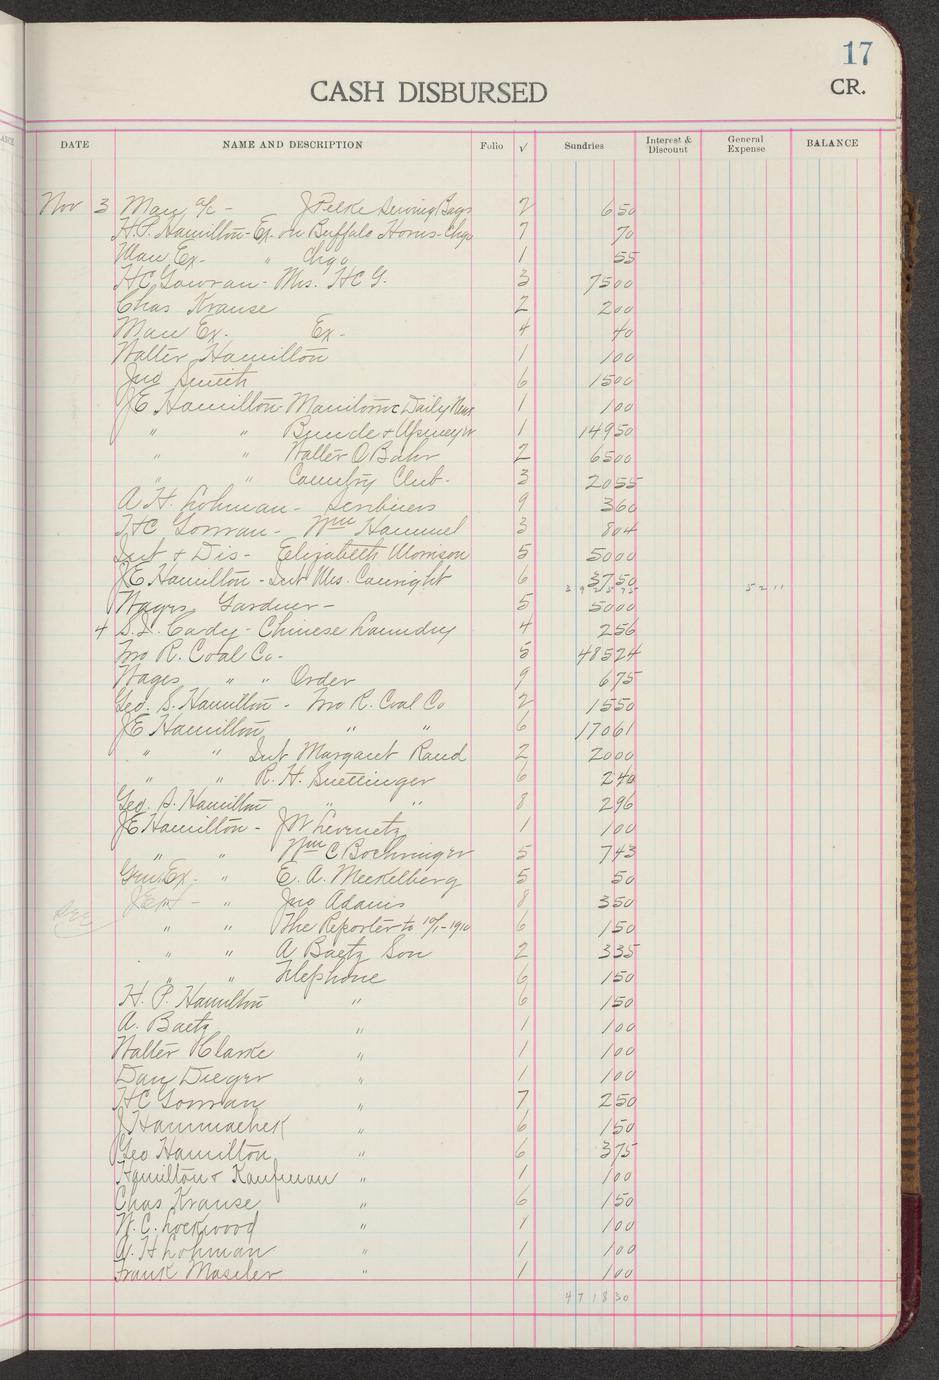 17
CASH DISBURSED
CR.
DATE NAME AND DESCRIPTION Folio √ Sundries Interest & Discount General Expense BALANCE
Nov 3 Man a/c - J Pelke Sewing Bags 2 6 50
H.P. Hamilton - Ex. on Buffalo Horns - Chgo 7 70
Man Ex- " Chgo 1 55
HC Gowran - Mrs. HCG. 3 75 00
Chas Krause 2 2 00
Man Ex. Ex- 4 40
Walter Hamilton 1 1 00
Jno Smith 6 15 00
JE Hamilton Manitowoc Daily News 1 1 00
" " Bunde & Upmeyer 1 149 50
" " Walter O Bahr 2 65 00
" " Country Club. 3 20 55
A. H. Lohman - Scribners 9 3 60
HC Gowran - Wm Hammel 3 8 04
Int & Dis - Elizabeth Morrison 5 50 00
JE Hamilton - Int Mrs. Cauright 6 37 50
Wages Gardner - 5 50 00
4 S.J. Cady - Chinese Laundry 4 2 56
Mo R. Coal Co. 5 485 24
Wages " " Order 9 6 75
Geo. S. Hamilton - Mo R. Coal Co 2 15 50
JE Hamilton " " 6 170 61
" " Int Margaret Rand 2 20 00
" " R. H. Suettinger 6 2 40
Geo. S. Hamilton " " 8 2 96
JE Hamilton - JW Levernetz 1 1 00
" " Wm C Boehringer 5 7 43
Gen Ex - " E. A. Meckelberg 5 50
JEH - " Jno Adams 8 3 50
" " The Reporter to 10/1-1910 6 1 50
" " A Baetz Son 2 3 35
" " Telephone 6 1 50
H. P. Hamilton " 6 1 50
A. Baetz " 1 1 00
Walter Clarke " 1 1 00
Dan Dieger " 1 1 00
HC Gowran " 7 2 50
J Hammachek " 6 1 50
Geo Hamilton " 6 3 75
Hamilton & Kaufman " 1 1 00
Chas Krause " 6 1 50
W. C. Lockwood " 1 1 00
A. H Lohman " 1 1 00
Frank Maseler " 1 1 00
4 7 1 8 30